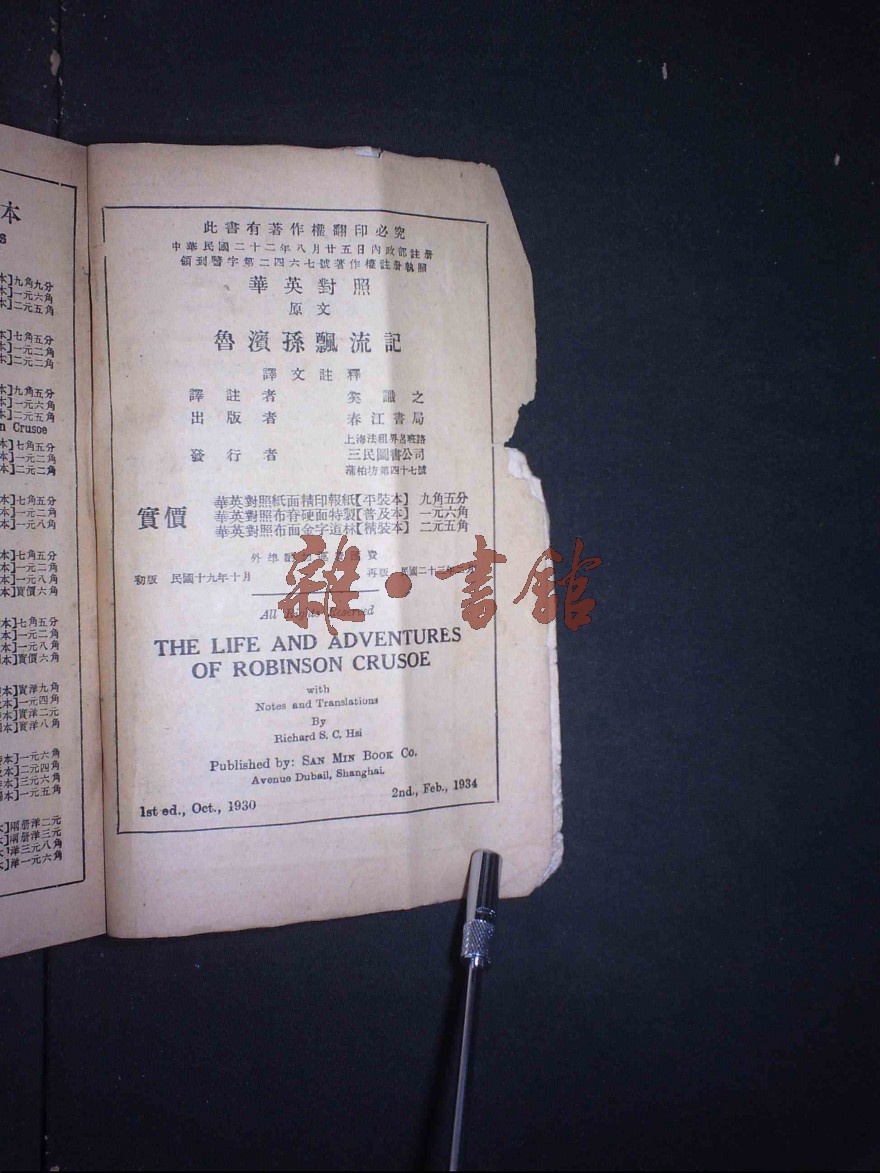 本
s
本]九角九分
本]一元六角
本]二元五角
本]七角五分
本]一元二角
本]二元二角
本]九角五分
本]一元六角
本]二元五角
n Crusoe
本]七角五分
本]一元二角
本]二元二角
本]七角五分
本]一元二角
本]一元八角
本]七角五分
本]一元二角
本]一元八角
本]實價六角
本]七角五分
本]一元二角
本]一元八角
本]實價六角
本]實洋九角
本]一元四角
本]實洋二元
本]實洋八角
本]一元六角
本]二元四角
本]三元六角
本]一元五角
本]兩册洋二元
本]兩册洋三元
本]洋三元八角
本]洋一元六角
此書有著作權翻印必究
中華民國二十二年八月廿五日內政部註册
領到警字第二四六七號著作權註册執照
華英對照
原文
魯濱孫飄流記
譯文註釋
譯註者 奚識之
出版者 春江書局
上海法租界呂班路
發行者 三民圖書公司
蒲柏坊第四十七號
實價
華英對照紙面精印報紙【平裝本】 九角五分
華英對照布脊硬面特製【普及本】 一元六角
華英對照布面金字道林【精裝本】 二元五角
外埠酌加
費
初版 民國十九年十月 再版 民國二十三年二月
雜·書館
All Rights Reserved
THE LIFE AND ADVENTURES
OF ROBINSON CRUSOE
with
Notes and Translations
By
Richard S. C. Hsi
Published by: SAN MIN BOOK CO.
Avenue Dubail, Shanghai.
1st ed., Oct., 1930 2nd., Feb., 1934